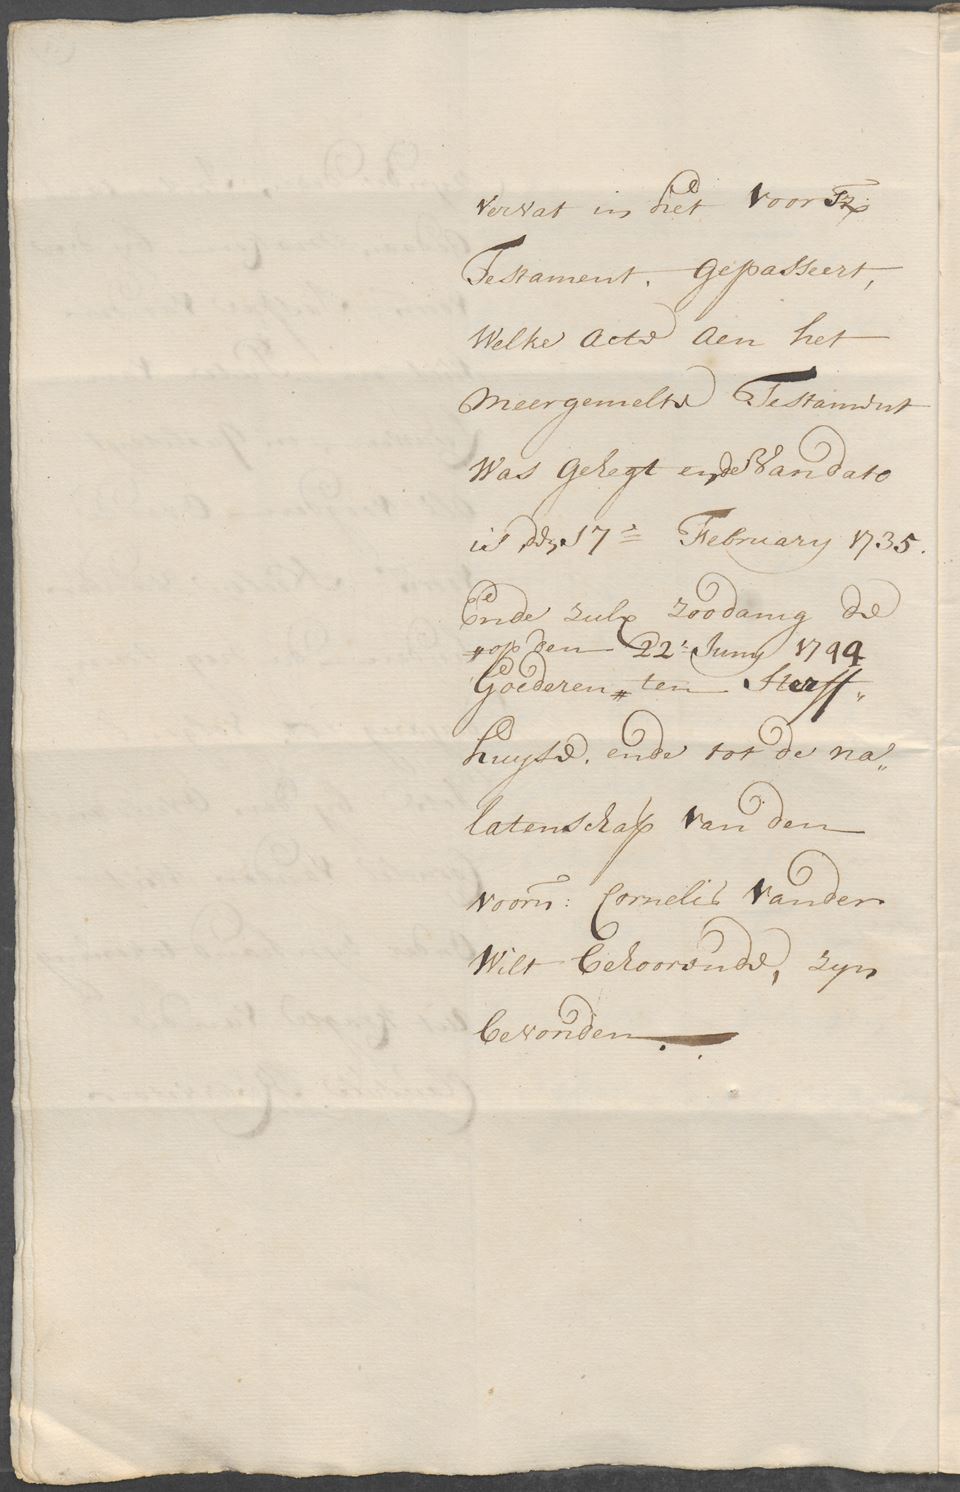 vervat in het voorsz
Testament. gepasseert,
Welke acte aen het
meergemelte Testament
was gehegt ende van dato
is den 17e February 1735.
Ende zulx zoodanig de
„op den 22e Juny 1744
Goederen „ ten sterff„
huyse. ende tot de na„
latenschap van den
voorn: Cornelis vander
Wilt behoorende, zyn
bevonden.